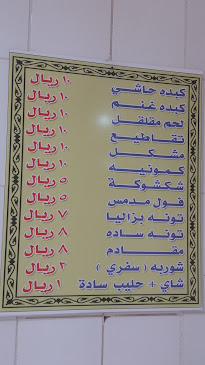 كبده حاشي ١٠ ريال
كبده غنم ١٠ ريال
لحم مقلقل ١٠ ريال
تقاطيع ١٠ ريال
مشكل ١٠ ريال
كمونيه ١٠ ريال
شكشوكة ٥ ريال
فول مدمس ٥ ريال
تونه بزاليا ٧ ريال
تونه ساده ٨ ريال
مقادم ٨ ريال
شوربه ( سفري ) ٢ ريال
شاي + حليب سادة ١ ريال